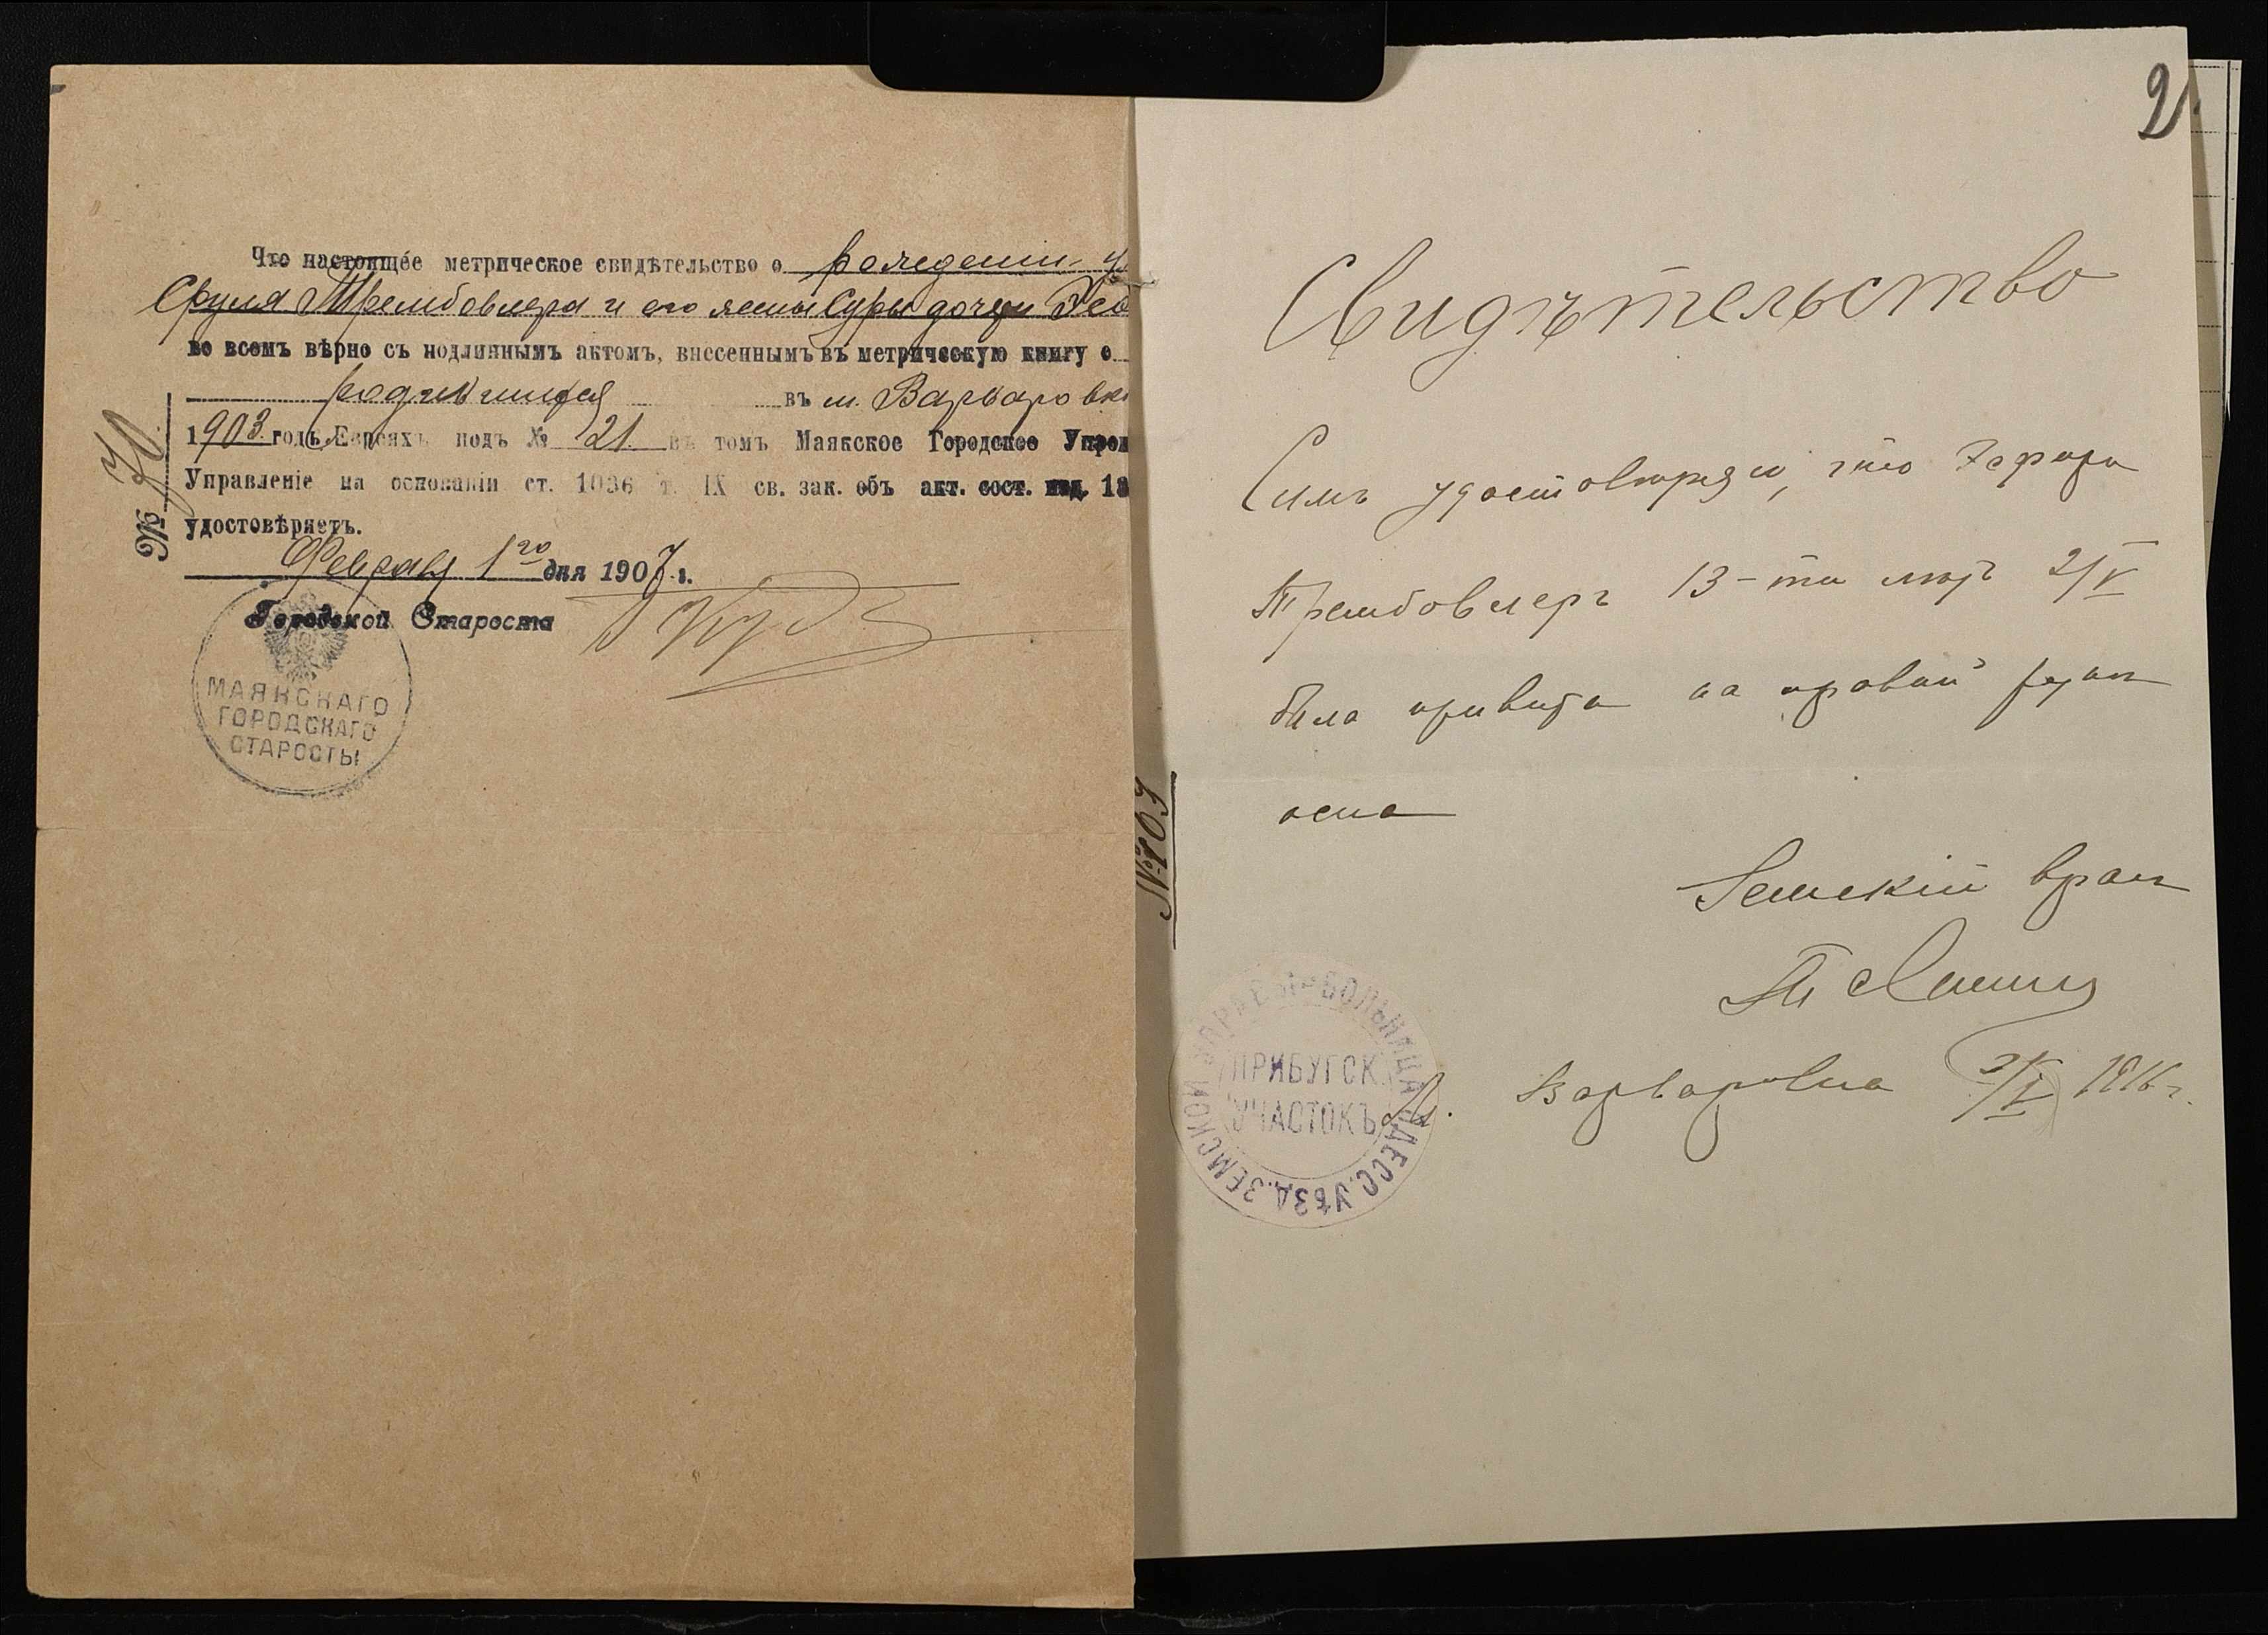 Что настоящее метрическое свидѣтельство о рожденіи у
Сруля Трембовлера и его жены Суры дочери
во всемъ вѣрно съ подлиннымъ актомъ, внесеннымъ въ метрическую книгу о
родившихся въ м. Варваровкѣ
1903 годъ Евреяхъ подъ № 21. въ томъ Маякское Городское Упро
Управленіе на основаніи ст. 1036 т. IX св. зак. объ акт. сост. изд. 18
удостовѣряетъ.
Февраля 1го дня 1907 г.
Городской Староста
МАЯКСКАГО
ГОРОДСКАГО
СТАРОСТЫ
№ 70
2
Свидѣтельство
Симъ удостовѣряю, что
Трембовлеръ 13-ти лѣтъ 2/V
была привита на правой рукѣ
оспа
Земскій врачъ
м. Варваровка 2/V 1916 г.
№ 103
ОДЕСС. УѢЗД. ЗЕМСКОЙ УПРАВЫ БОЛЬНИЦА
ПРИБУГСК.
УЧАСТОКЪ